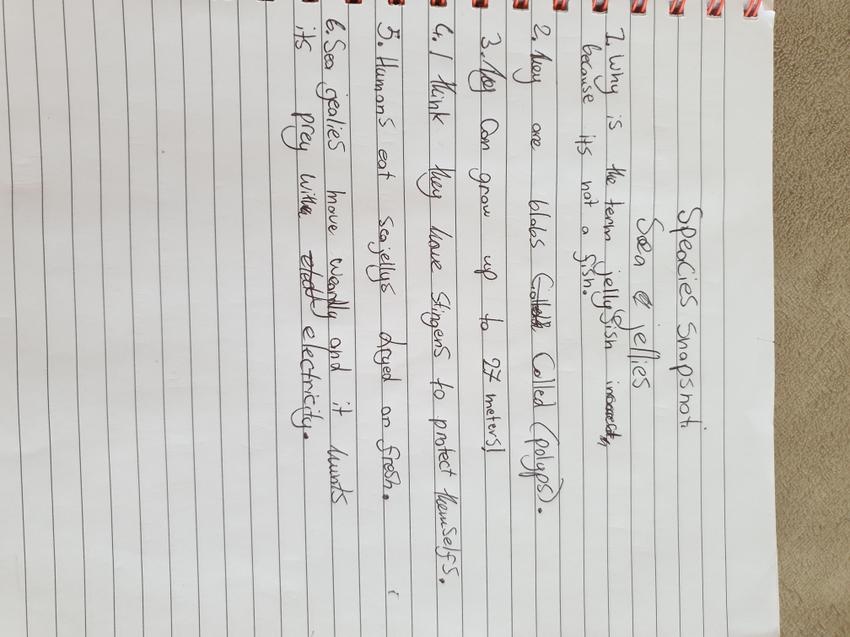 Speacies snapshot:
Sea jellies
1. Why is the term jellyfish
because its not a fish.
2. they are blobs Called (polyps).
3. they Can grow up to 27 meters!
4. I think they have stingers to protect themselfs.
5. Humans eat seajellys dryed or fresh.
6. Sea jealies move weardly and it hunts
its prey with electricity.